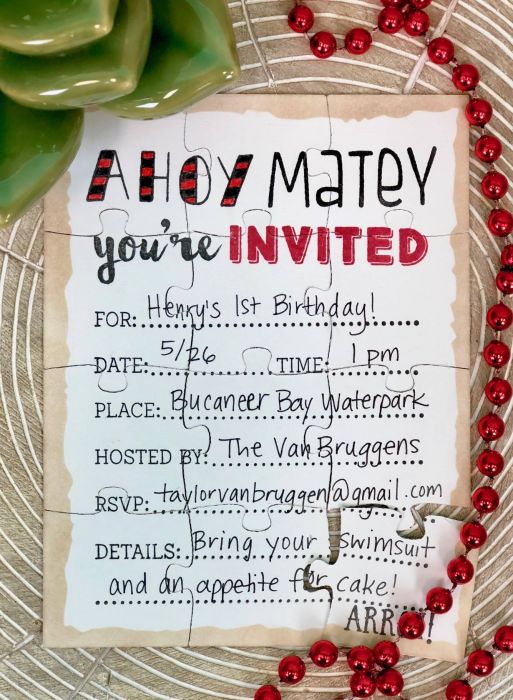 AHOY MATEY
you're INVITED
FOR: Henry's 1st Birthday!
DATE: 5/26 TIME: 1 pm
PLACE: Bucaneer Bay Waterpark
HOSTED BY: The VanBruggens
RSVP: taylorvanbruggen@gmail.com
DETAILS: Bring your swimsuit
and an appetite for cake!